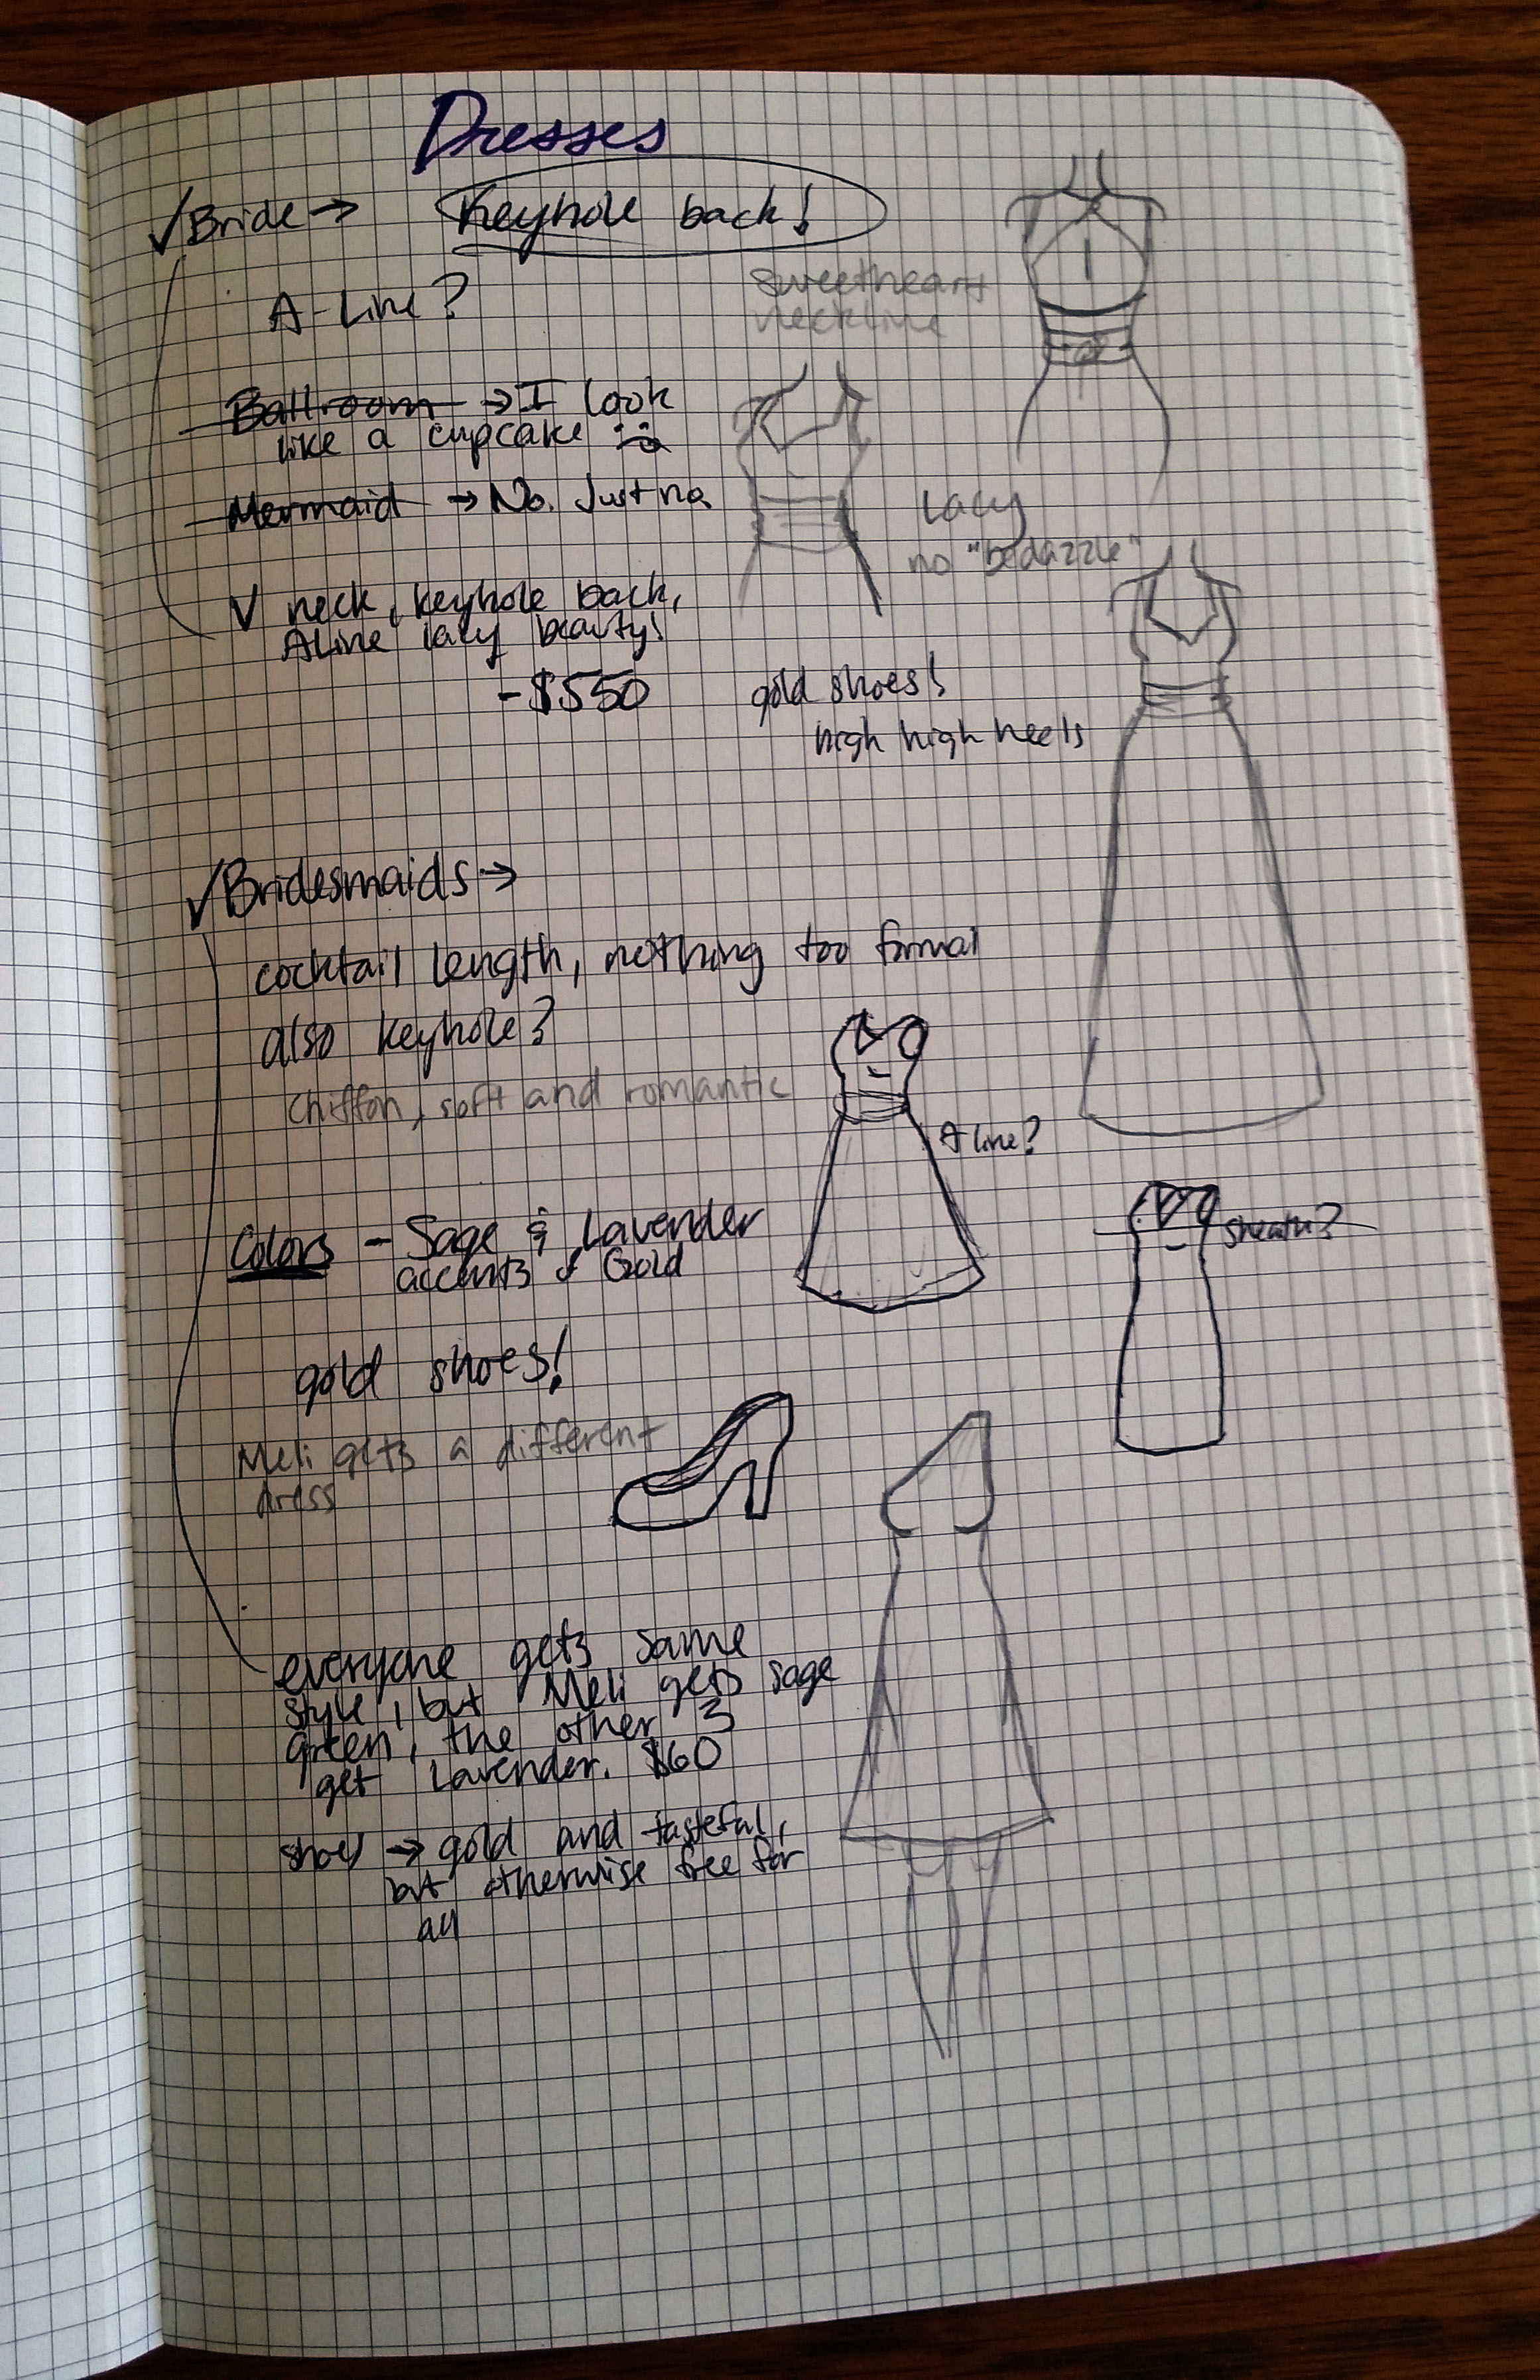 Dresses
✓Bride → Keyhole back!
A-Line?
sweetheart
neckline
Ballroom → I look
like a cupcake :(
Mermaid → No. Just no.
Lacy
no "bedazzle"
V neck, keyhole back,
A Line lacy beauty!
- $550
gold shoes!
high high heels
✓Bridesmaids →
cocktail length, nothing too formal
also keyhole?
chiffon, soft and romantic
A line?
Colors - Sage & Lavender
accents of Gold
sheath?
gold shoes!
Meli gets a different
dress
everyone gets same
style, but Meli gets sage
green, the other 3
get Lavender. $160
shoes → gold and tasteful,
but otherwise free for
all